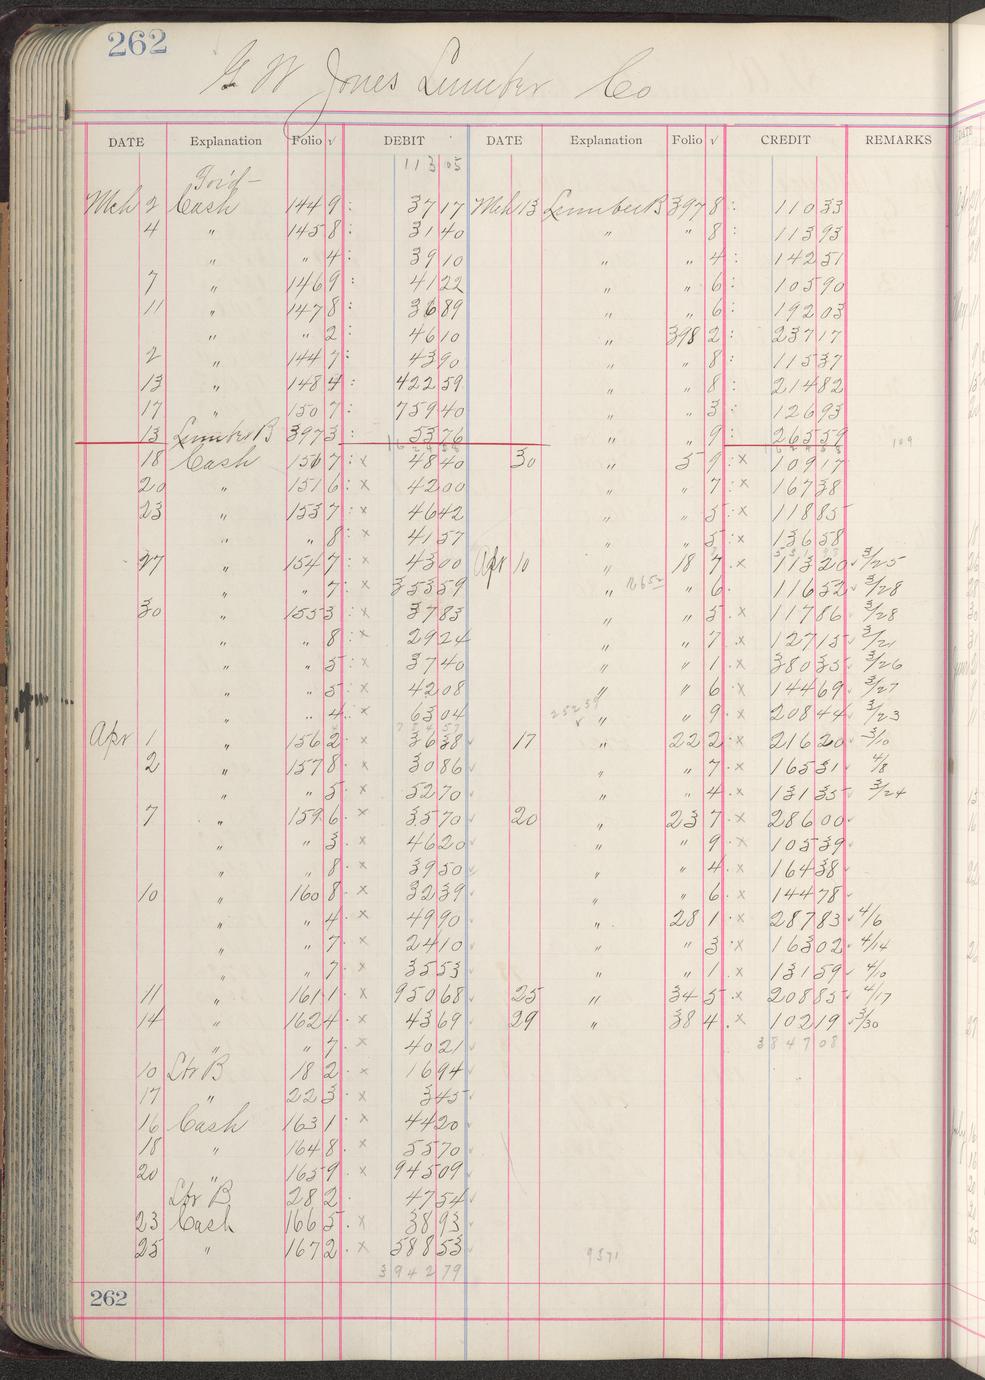 262
G W Jones Lumber Co
DATE Explanation Folio √ DEBIT DATE Explanation Folio √ CREDIT REMARKS
113 05
For'd
Mch 2 Cash 144 9 : 37 17 Mch 13 Lumber B 397 8 : 110 33
4 " 145 8 : 31 40 " " 8 : 113 93
" " 4 : 39 10 " " 4 : 142 51
7 " 146 9 : 41 22 " " 6 : 105 90
11 " 147 8 : 36 89 " " 6 : 192 03
" " 2 : 46 10 " 398 2 : 237 17
2 " 144 7 : 43 90 " " 8 : 115 37
13 " 148 4 : 422 59 " " 8 : 214 82
17 " 150 7 : 759 40 " " 3 : 126 93
13 Lumber B 397 3 : 53 76 " " 9 : 265 59 109
18 Cash 150 7 : x 48 40 30 " 5 9 : x 109 17
20 " 151 6 : x 42 00 " " 7 : x 167 38
23 " 153 7 : x 46 42 " " 5 : x 118 85
" " 8 : x 41 57 " " 5 : x 136 58
27 " 154 7 : x 43 00 Apr 10 " 18 7 . x 113 20 3/25
" " 7 : x 353 59 " 16652 " 6 . 116 52 3/28
30 " 155 3 : x 37 83 " " 5 . x 117 86 3/28
" " 8 : x 29 24 " " 7 . x 127 15 3/21
" " 5 : x 37 40 " " 1 . x 380 35 3/26
" " 5 : x 42 08 " " 6 . x 144 69 3/27
" " 4 . x 63 04 25259 " " 9 . x 208 44 3/23
Apr 1 " 156 2 . x 36 38 17 " 22 2 . x 216 20 3/10
2 " 157 8 . x 30 86 " " 7 . x 165 31 4/8
" " 5 . x 52 70 " " 4 . x 131 35 3/24
7 " 159 6 . x 35 70 20 " 23 7 . x 286 00
" " 3 . x 46 20 " " 9 . x 105 39
" " 8 . x 39 50 " " 4 . x 164 38
10 " 160 8 . x 32 39 " " 6 . x 144 78
" " 4 . x 49 90 " 28 1 . x 287 83 4/6
" " 7 . x 24 10 " " 3 . x 163 02 4/14
" " 7 . x 35 53 " " 1 . x 131 59 4/10
11 " 161 1 . x 950 68 25 " 34 5 . x 208 85 4/17
14 " 162 4 . x 43 69 29 " 38 4 . x 102 19 3/30
" " 7 . x 40 21 3847 08
10 Lbr B 18 2 . x 16 94
17 " 22 3 . x 3 45
16 Cash 163 1 x 44 20
18 " 164 8 . x 55 70
20 " 165 9 . x 945 09
Lbr B 28 2 . 47 54
23 Cash 166 5 . x 38 93
25 " 167 2 . x 588 53 9371
3942 79
262